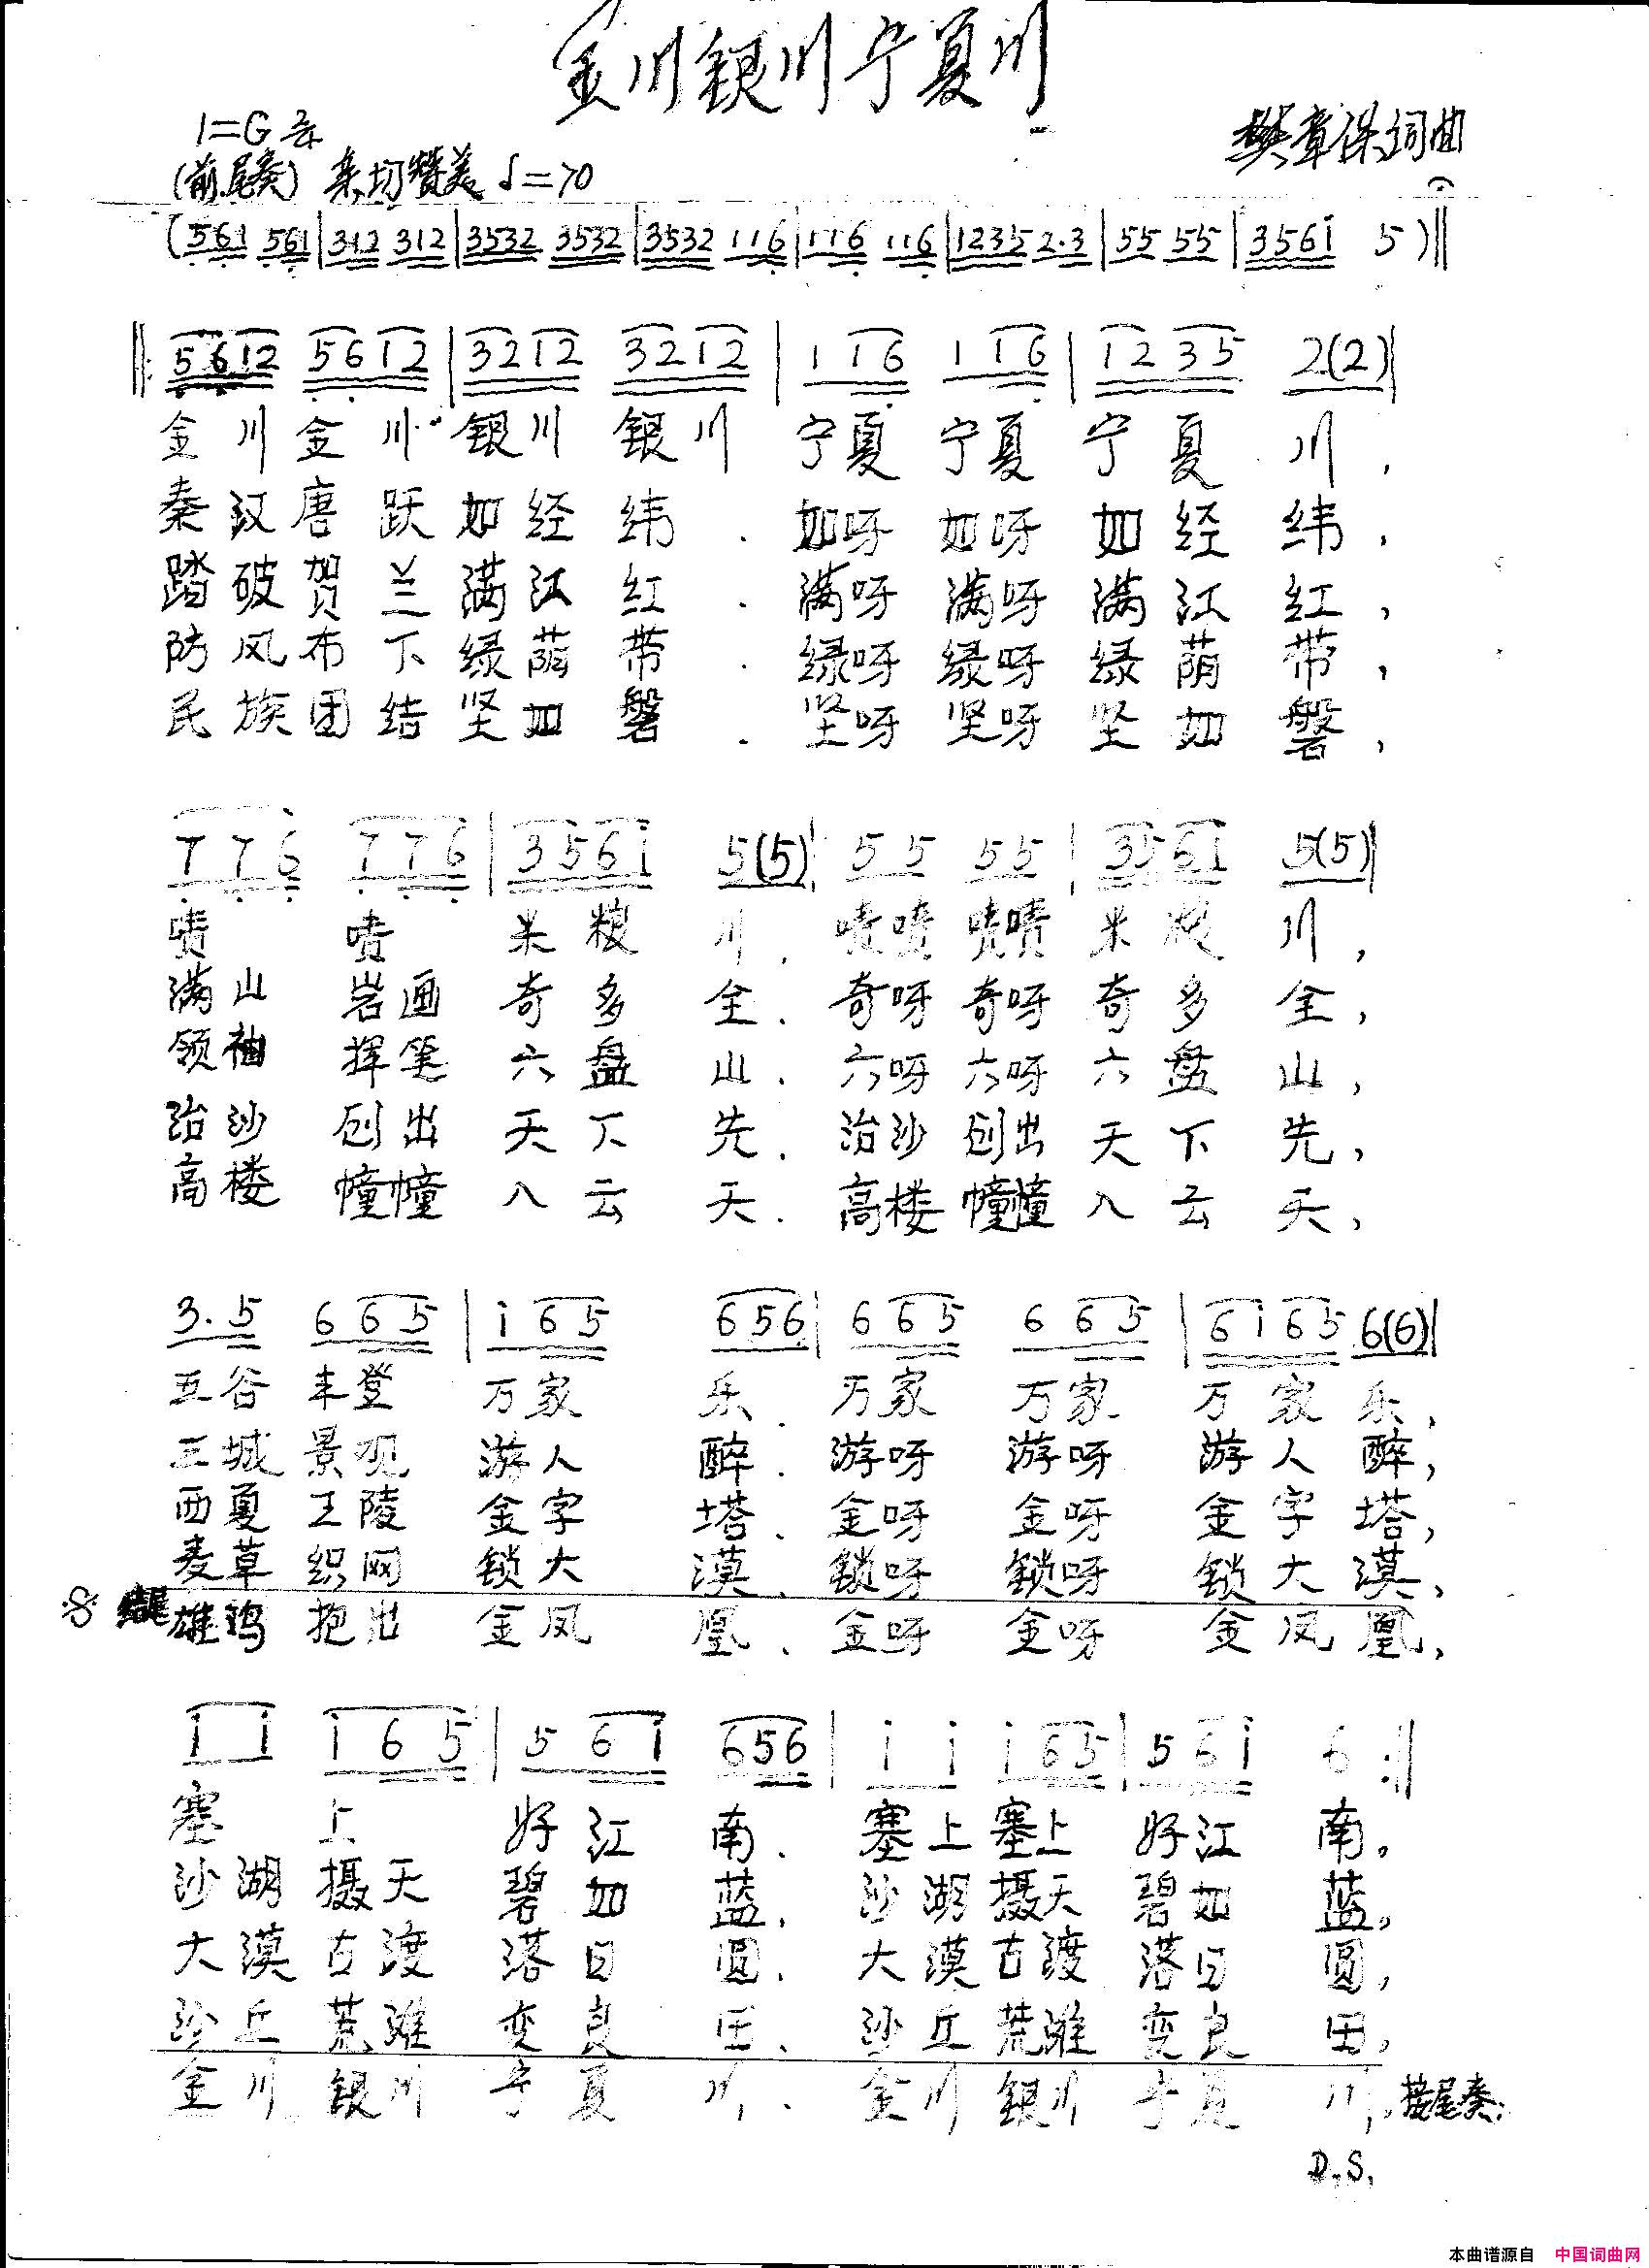 金川银川宁夏川
1=G 2/4
樊章保词曲
(前.尾奏) 亲切 赞美 ♩=70
(561 561 | 312 312 | 3532 3532 | 3532 116 | 116 116 | 1235 2·3 | 55 55 | 356i 5 )‖
‖: 5612 5612 | 3212 3212 | 1 16 1 16 | 1235 2(2) |
金川金川 银川银川 宁夏 宁夏 宁夏川,
秦汉唐跃如经纬. 如呀 如呀 如经纬,
踏破贺兰满江红. 满呀 满呀 满江红,
防风布下绿荫带. 绿呀 绿呀 绿荫带,
民族团结坚如磐. 坚呀 坚呀 坚如磐,
7 76 7 76 | 356i 5(5) | 55 55 | 356i 5(5) |
啧 啧 米粮川. 啧啧 啧啧 米粮川,
满山 岩画 奇多全. 奇呀 奇呀 奇多全,
领袖 挥笔 六盘山. 六呀 六呀 六盘山,
治沙 创出 天下先. 治沙 创出 天下先,
高楼 幢幢 入云天. 高楼 幢幢 入云天,
3·5 6 65 | i 65 656 | 6 65 6 65 | 6i65 6(6) |
五谷 丰登 万家乐. 万家 万家 万家乐,
三城 景观 游人醉. 游呀 游呀 游人醉,
西夏 王陵 金字塔. 金呀 金呀 金字塔,
麦草 织网 锁大漠. 锁呀 锁呀 锁大漠,
结尾 雄鸡 抱出 金凤凰. 金呀 金呀 金凤凰,
i i i 65 | 5 6i 656 | i i i 65 | 5 6i 6 :‖
塞 上 好江南. 塞上塞上 好江南。
沙湖摄天 碧如蓝. 沙湖摄天 碧如蓝,
大漠古渡 落日圆. 大漠古渡 落日圆,
沙丘荒滩 变良田. 沙丘荒滩 变良田,
金川银川 宁夏川. 金川银川 宁夏川, 接尾奏.
D.S.
本曲谱源自 中国词曲网